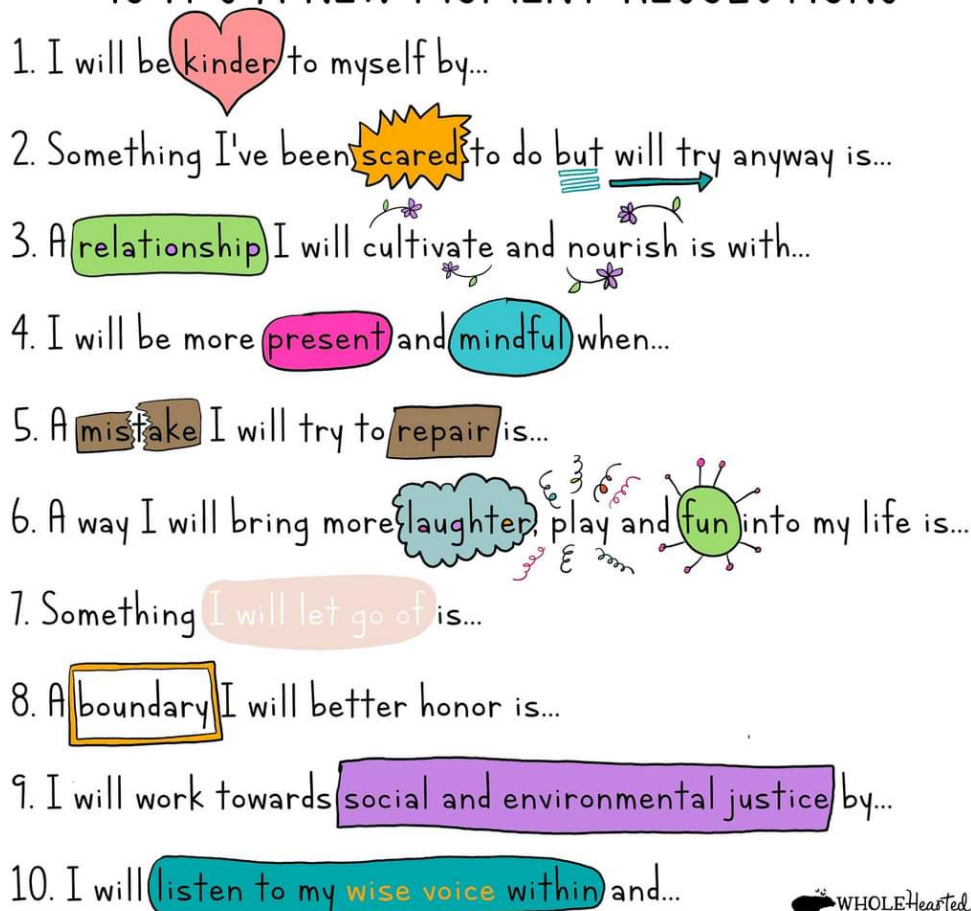 10 IT'S A NEW MOMENT RESOLUTIONS
1. I will be kinder to myself by...
2. Something I've been scared to do but will try anyway is...
3. A relationship I will cultivate and nourish is with...
4. I will be more present and mindful when...
5. A mistake I will try to repair is...
6. A way I will bring more laughter, play and fun into my life is...
7. Something I will let go of is...
8. A boundary I will better honor is...
9. I will work towards social and environmental justice by...
10. I will listen to my wise voice within and...
WHOLEHearted